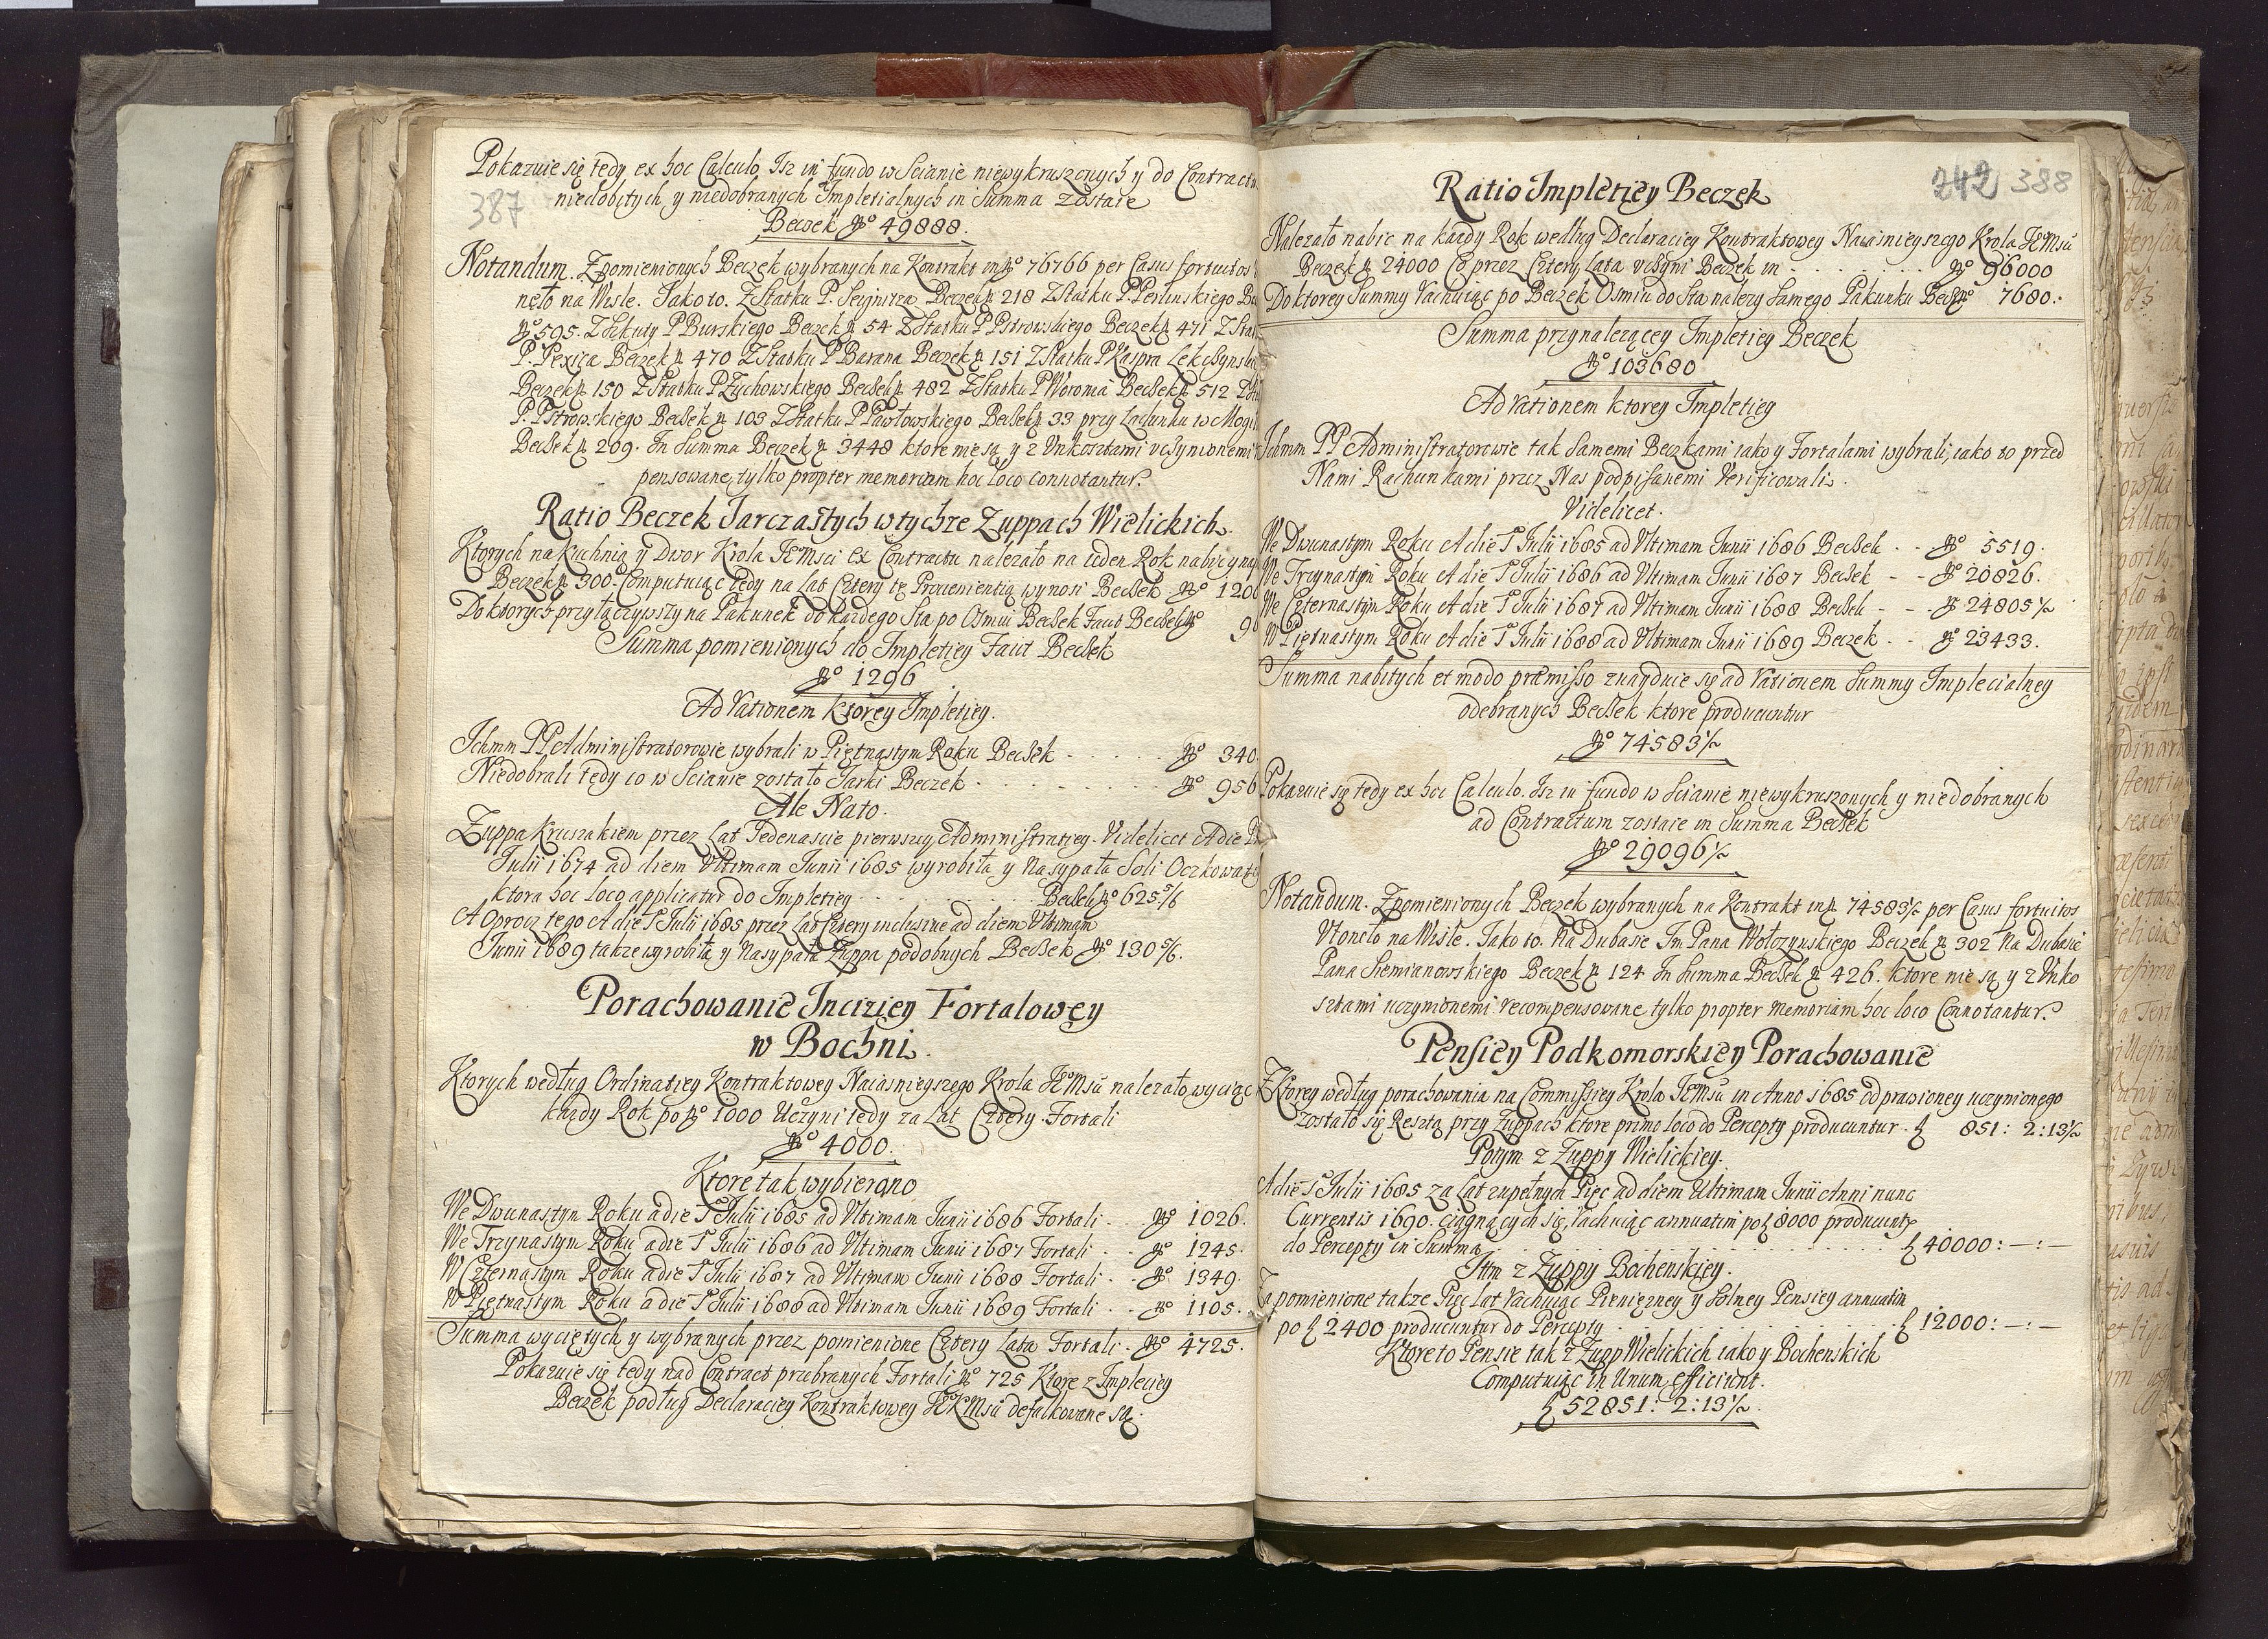 Pokazuie się tedy ex hoc Calculo, Isz in fundo w Scianie niewykruszonych y do Contractu
387
niedobitych y niedobranych Impletialnych in Summa zostaie
Beczek No 49888.
Notandum. Zpomienionych Beczek wybranych na Kontrakt in No 76766 per Casus fortuitos
nęło na Wisle. Jako to. Z Statku P. Beczek n 218 Z Statku P. Perlinskiego
No 595. Z Szkuty P Burskiego Beczek n 54 Z Statku P Pstrowskiego Beczek n 471
P. Pexica Beczek n 470 Z Statku P Barana Beczek n 151 Z Statku P Kaspra
Beczek n 150 Z Statku P Zuchowskiego Beczek n 482 Z Statku P Woroma Beczek n 512
P. Pstrowskiego Beczek n 103 Z Statku P Pawłowskiego Beczek n 33 przy Ladunku w
Beczek n 209. In Summa Beczek n 3448 ktore nie są y z Vnkosztami vczynionemi
pensowane, tylko propter memoriam hoc loco connotantur.
Ratio Beczek Jarczastych w tychze Zuppach Wielickich.
Ktorych na Kuchnią y Dwor Krola JEMsci ex Contractu nalezało na ieden Rok nabic y
Beczek n 300. Computuiąc tedy na Lat Cztery tę Proueniencią wynosi Beczek No 120
Do ktorych przyłączywszy na Pakunek do kazdego Sta po Osmiu Beczek Facit Beczek No 9
Summa pomienionych do Impletiey Facit Beczek
No 1296
Ad Rationem ktorey Impletiey.
Ichmm PP Administratorowie wybrali w Piętnastym Roku Beczek . . . . . No 340
Niedobrali tedy co w Scianie zostało Jarki Beczek . . . . . . . . No 956
Ale Nato.
Zuppa Kruszakiem przez Lat Jedenascie pierwszy Administratiey. Videlicet A die
Julii 1674 ad diem Vltimam Junii 1685 wyrobiła y Nasypała Soli
ktora hoc loco applicatur do Impletiey . . . . . . . . Beczek No 625 5/6
A Oprocz tego A die 1 Julii 1685 przez Lat Cztery inclusiue ad diem Vltimam
Junii 1689 takze wyrobiła y Nasypała Zuppa podobnych Beczek No 130 5/6.
Porachowanie Inciziey Fortalowey
w Bochni.
Ktorych według Ordinatiey Kontraktowey Naiasnieyszego Krola JEMsci nalezało wyciąc
kazdy Rok po No 1000 Uczyni tedy za Lat Cztery Fortali
No 4000.
Ktore tak wybierano
We Dwunastym Roku a die 1 Julii 1685 ad Vltimam Junii 1686 Fortali . . No 1026.
We Trzynastym Roku a die 1 Julii 1686 ad Vltimam Junii 1687 Fortali . . No 1245.
W Czternastym Roku a die 1 Julii 1687 ad Vltimam Junii 1688 Fortali . . No 1349.
W Piętnastym Roku a die 1 Julii 1688 ad Vltimam Junii 1689 Fortali . . No 1105.
Summa wyciętych y wybranych przez pomienione Cztery Lata Fortali . No 4725.
Pokazuie się tedy nad Contract przebranych Fortali No 725 Ktore z Impleciey
Beczek podług Declaraciey Kontraktowey JKMsci defalkowane są.
242 388
Ratio Impletiey Beczek
Nalezało nabic na kazdy Rok według Declaraciey Kontraktowey Naiasnieyszego Krola JEMsci
Beczek n 24000 Co przez Cztery Lata vczyni Beczek in . . . . . . No 96000
Do ktorey Summy Rachuiąc po Beczek Osmiu do Sta nalezy Samego Pakunku Beczek No 7680.
Summa przynalezącey Impletiey Beczek
No 103680
Ad Rationem ktorey Impletiey
Ichmm PP Administratorowie tak Samemi Beczkami iako y Fortalami wybrali, iako to przed
Nami Rachunkami przez Nas podpisanemi Verificowali.
Videlicet.
We Dwunastym Roku A die 1 Julii 1685 ad Vltimam Junii 1686 Beczek . . No 5519.
We Trzynastym Roku A die 1 Julii 1686 ad Vltimam Junii 1687 Beczek - - No 20826.
We Czternastym Roku A die 1 Julii 1687 ad Vltimam Junii 1688 Beczek - - No 24805 1/2
W Piętnastym Roku A die 1 Julii 1688 ad Vltimam Junii 1689 Beczek . . No 23433.
Summa nabitych et modo præmisso znayduie się ad Rationem Summy Implecialney
odebranych Beczek ktore producuntur
No 74583 1/2
Pokazuie się tedy ex hoc Calculo. Isz in fundo w Scianie niewykruszonych y niedobranych
ad Contractum zostaie in Summa Beczek
No 29096 1/2
Notandum. Zpomienionych Beczek wybranych na Kontrakt in n 74583 1/2 per Casus fortuitos
Vtonęło na Wisle. Jako to. Na Dubasie Im Pana Wołozynskiego Beczek n 302 Na Dubasie
Pana Siemianowskiego Beczek n 124 In Summa Beczek n 426. ktore nie są y z Vnko
sztami uczynionemi recompensowane tylko propter Memoriam hoc loco Connotantur.
Pensiey Podkomorskiey Porachowanie
Z Ktorey według porachowania na Commissiey Krola JEMsci in Anno 1685 odprawioney uczynionego
Zostało się Reszta przy Zuppach ktore primo loco do Percepty producuntur . f 851: 2:13 1/2
Potym z Zuppy Wielickiey.
A die 1 Julii 1685 za Lat zupełnych Pięc ad diem Ultimam Junii Anni nunc
Currentis 1690. ciągnących się, rachuiąc annuatim po f 8000 producuntur
do Percepty in Summa . . . . . . . . . . . . f 40000:—:—
Ittm z Zuppy Bochenskiey.
Za pomienione takze Pięc Lat rachuiąc Pienięzney y Solney Pensiey annuatim
po f 2400 producuntur do Percepty . . . . . . . . . f 12000:—:—
Ktore to Pensie tak z Zupp Wielickich iako y Bochenskich
Computuiąc in Unum efficiunt.
f 52851: 2:13 1/2.